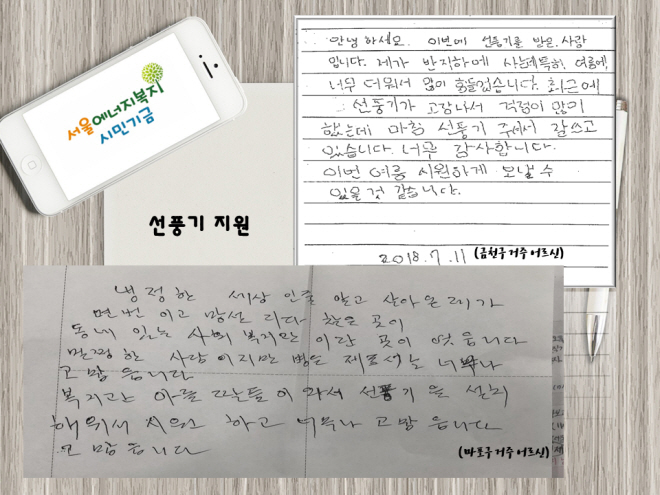 서울에너지복지
시민기금
선풍기 지원
안녕하세요. 이번에 선풍기를 받은 사람
입니다. 제가 반지하에 사는데 특히, 여름에
너무 더워서 많이 힘들었습니다. 최근에
선풍기가 고장나서 걱정이 많이
했는데 마침 선풍기 주셔서 잘쓰고
있습니다. 너무 감사합니다.
이번 여름 시원하게 보낼 수
있을것 같습니다.
2018.7.11 (금천구 거주 어르신)
냉정한 세상 인줄 알고 살아온 레가
면번 이고 망설 리다 찾은 곳이
동네 있는 사회 복지만 이란 곳이 엇 읍니다
한 사람 이지만 너무나
고맙 읍니다
복지고는 아들 따는들이 와서 선풍기 을 설치
해 워서 지원 하고 너무나 고맙 읍니다
고맙 읍니다
(마포구 거주 어르신)